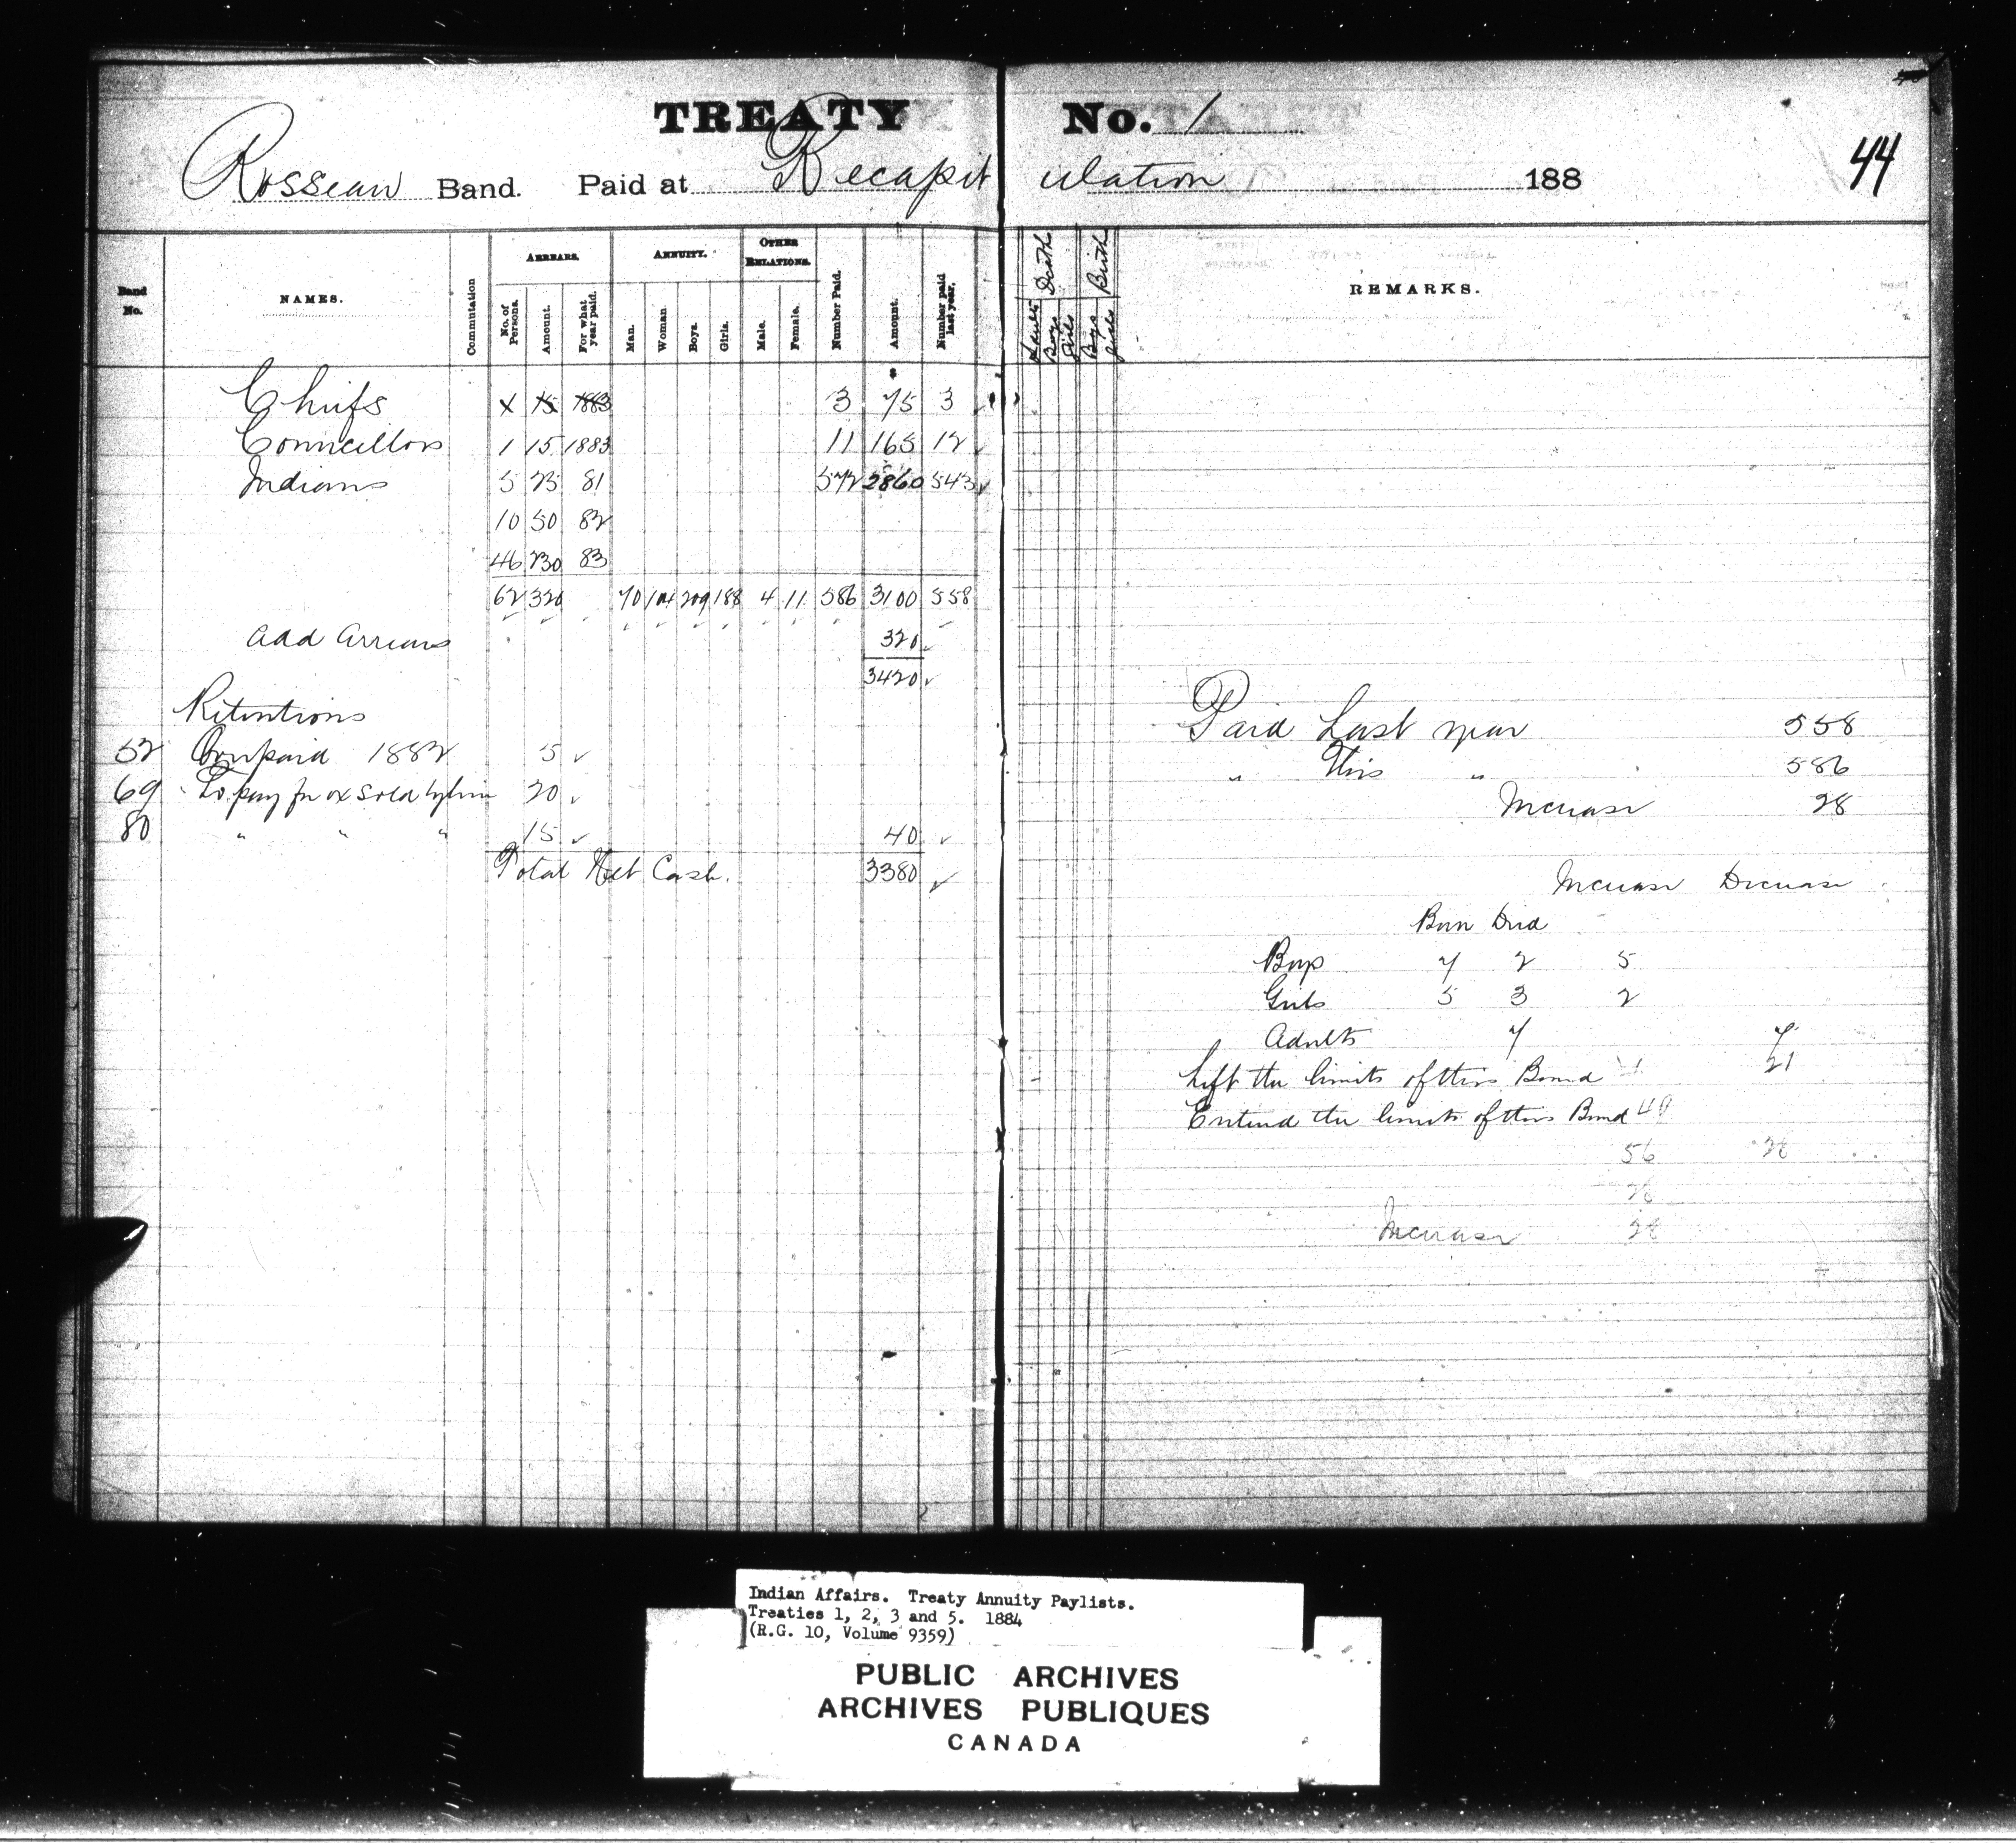 TREATY No. 1
44
Rosseau Band. Paid at Recapitulation 188
Band No. NAMES. Commutation ARREARS. No. of Persons. Amount. For what year paid. ANNUITY. Man. Woman Boys. Girls. OTHER RELATIONS. Male. Female. Number Paid. Amount. Number paid last year. Death Adults Boys Girls Birth Boys Girls REMARKS.
Chiefs 3 75 3
Councillors 1 15 1883 11 165 12
Indians 5 25 81 572 2860 543
10 50 82
46 230 83
62 320 70 104 209 188 4 11 586 3100 558
add arrears 320
3420
Retentions
52 Overpaid 1882 5
69 To pay for ox sold by him 20
80 " " " 15 40
Total Net Cash. 3380
Paid Last year 558
" This " 586
Increase 28
Increase Decrease
Born Died
Boys 7 2 5
Girls 5 3 2
Adults 7 7
Left the limits of this Band 21
Entered the limits of this Band 49
56 28
28
Increase 28
Indian Affairs. Treaty Annuity Paylists.
Treaties 1, 2, 3 and 5. 1884
(R.G. 10, Volume 9359)
PUBLIC ARCHIVES
ARCHIVES PUBLIQUES
CANADA